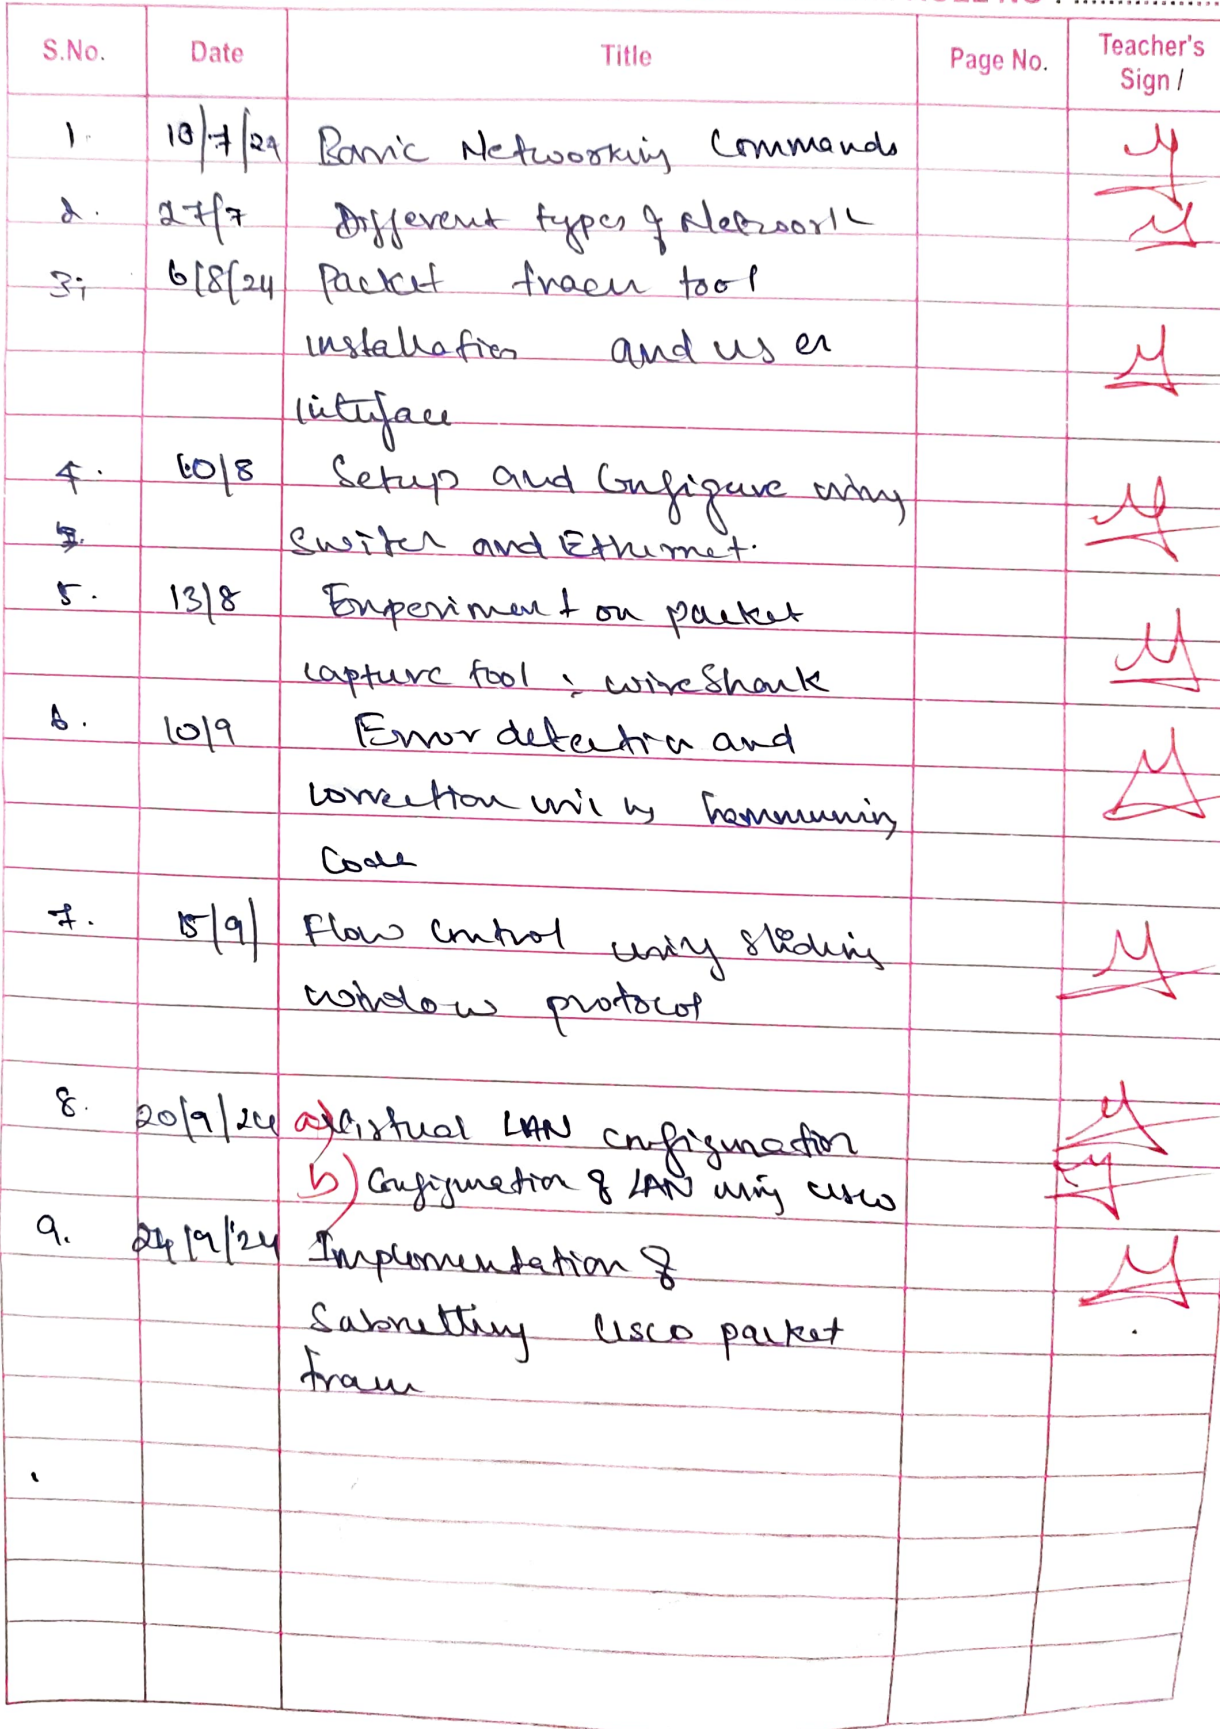 S.No. Date Title Page No. Teacher's Sign /
1. 10/7/24 Basic Networking Commands
2. 27/7 Different types of Network
3; 6/8/24 Packet tracer tool
installation and user
interface
4. 10/8 Setup and Configure using
Switch and Ethernet.
5. 13/8 Experiment on packet
capture tool : wireShark
6. 10/9 Error detection and
correction using hammuning
Code
7. 15/9/ Flow control using sliding
window protocol
8. 20/9/24 a) Virtual LAN configuration
b) Configuration of LAN using cisco
9. 24/9/24 Implementation of
Subnetting cisco packet
tracer